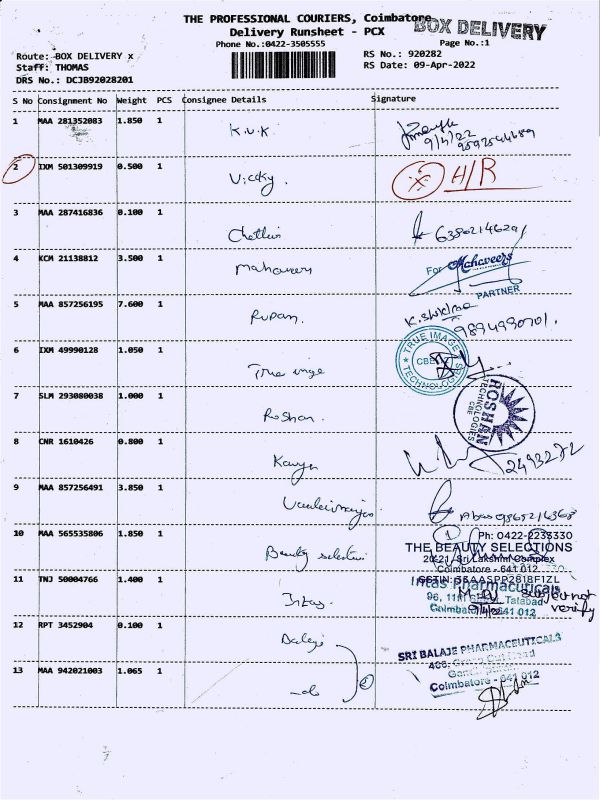 THE PROFESSIONAL COURIERS, Coimbatore
BOX DELIVERY
Delivery Runsheet - PCX
Phone No.:0422-3505555
Page No.:1
Route: BOX DELIVERY x
RS No.: 920282
Staff: THOMAS
RS Date: 09-Apr-2022
DRS No.: DCJB92028201
S No Consignment No Weight PCS Consignee Details Signature
1 MAA 281352083 1.850 1 K.V.K
9/4/22
2 IXM 501309919 0.500 1 Vicky. H/R
3 MAA 287416836 0.100 1
4 KCM 21138812 3.500 1 Mahaveers For Mahaveers
PARTNER
5 MAA 857256195 7.600 1 Rupam.
9894930701.
6 IXM 49990128 1.050 1 True image TRUE IMAGE TECHNOLOGIES CBE
7 SLM 293080038 1.000 1 Roshan. ROSHAN TECHNOLOGIES CBE
8 CNR 1610426 0.800 1 Kavya 2493272
9 MAA 857256491 3.850 1
10 MAA 565535806 1.850 1 Beauty selection Ph: 0422-2233330
THE BEAUTY SELECTIONS
20-21 Sri Lakshmi Complex
Coimbatore - 641 012
11 TNJ 50004766 1.400 1 Intas. Intas Pharmaceuticals
96, 11th Tatabad
Coimbatore 641 012
subject not
verify
12 RPT 3452904 0.100 1 Balaji SRI BALAJE PHARMACEUTICALS
13 MAA 942021003 1.065 1 -do 2
Coimbatore - 641 012